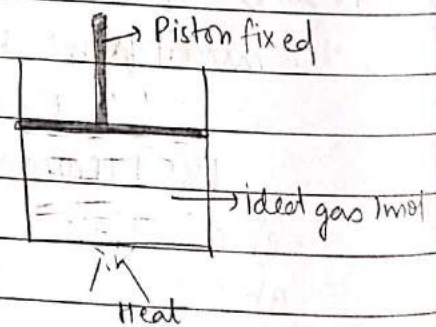 Piston fixed
ideal gas 1mol
Heat